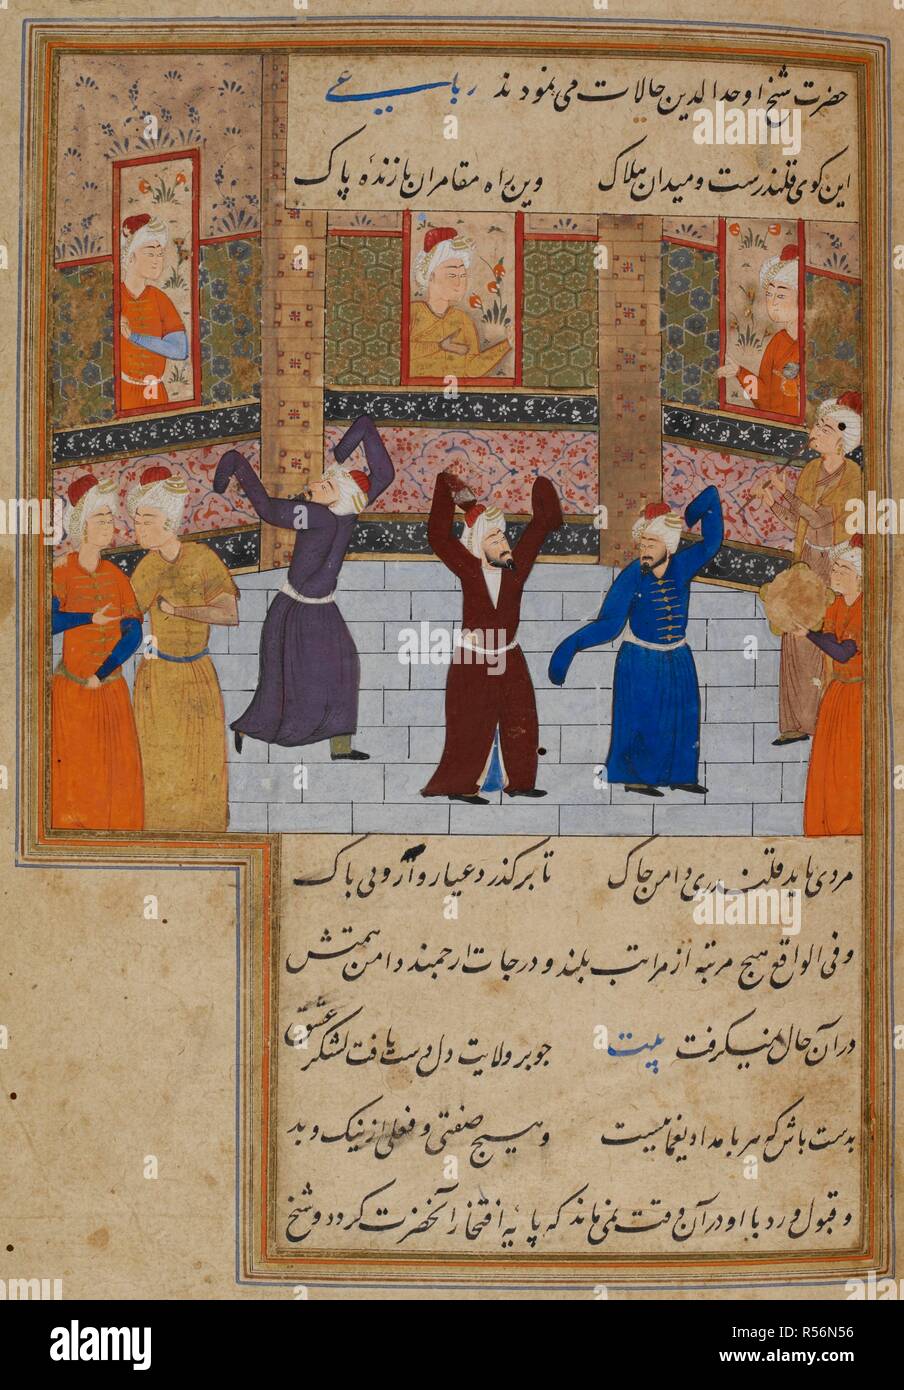 حضرت شیخ اوحدالدین حالات می نمودند رباعی
این کوی قلندرست و میدان هلاک وین راه مقامران بازندهٔ پاک
مردی باید قلندری دامن چاک تا برگذرد عیاروار و بی باک
و فی الواقع هیچ مرتبه از مراتب بلند و درجات ارجمند دامن همتش
در آن حال نمیگرفت بیت چو بر ولایت دل دست یافت لشکر عشق
بدست باش که هر بامداد یغماییست و هیچ صفتی و فعلی از نیک و بد
و قبول و رد با او در آن وقت نمی ماند که پایه افتخار آنحضرت گردد و شیخ
alamy
Image ID: R56N56
www.alamy.com